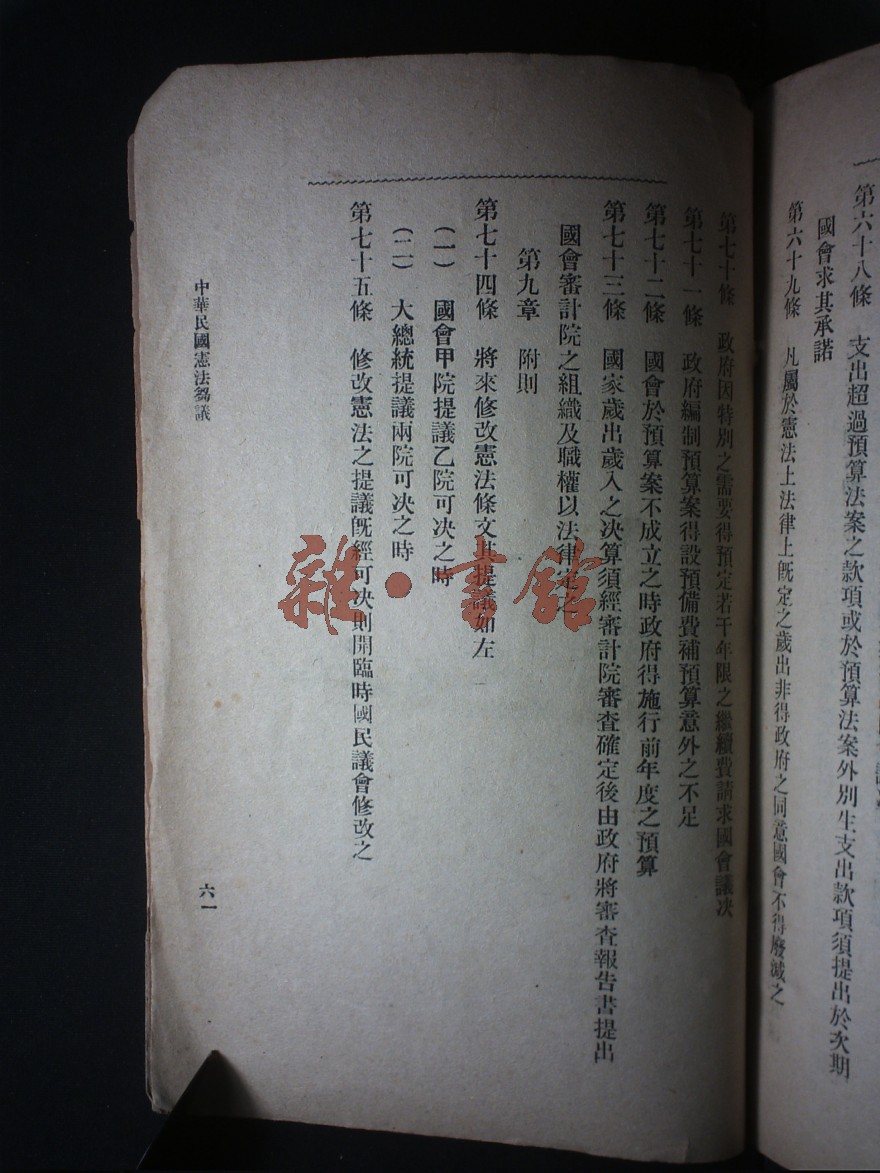 第六十八條　支出超過預算法案之款項或於預算法案外別生支出款項須提出於次期
國會求其承諾
第六十九條　凡屬於憲法上法律上旣定之歲出非得政府之同意國會不得廢減之
第七十條　政府因特別之需要得預定若干年限之繼續費請求國會議決
第七十一條　政府編制預算案得設預備費補預算意外之不足
第七十二條　國會於預算案不成立之時政府得施行前年度之預算
第七十三條　國家歲出歲入之決算須經審計院審查確定後由政府將審查報告書提出
國會審計院之組織及職權以法律定之
第九章　附則
第七十四條　將來修改憲法條文其提議如左
（一）　國會甲院提議乙院可決之時
（二）　大總統提議兩院可決之時
第七十五條　修改憲法之提議旣經可決則開臨時國民議會修改之
中華民國憲法芻議
六一
雜·書館